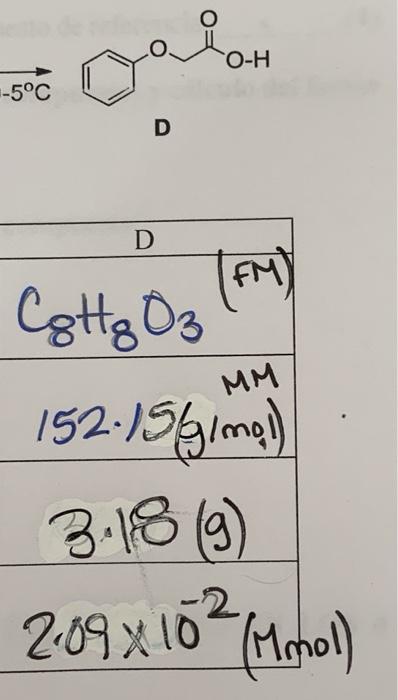 O
O
O-H
0-5°C
D
D
C8H8O3 (FM)
MM
152.15 (g/mol)
3.18 (g)
2.09 x 10-2 (Mmol)